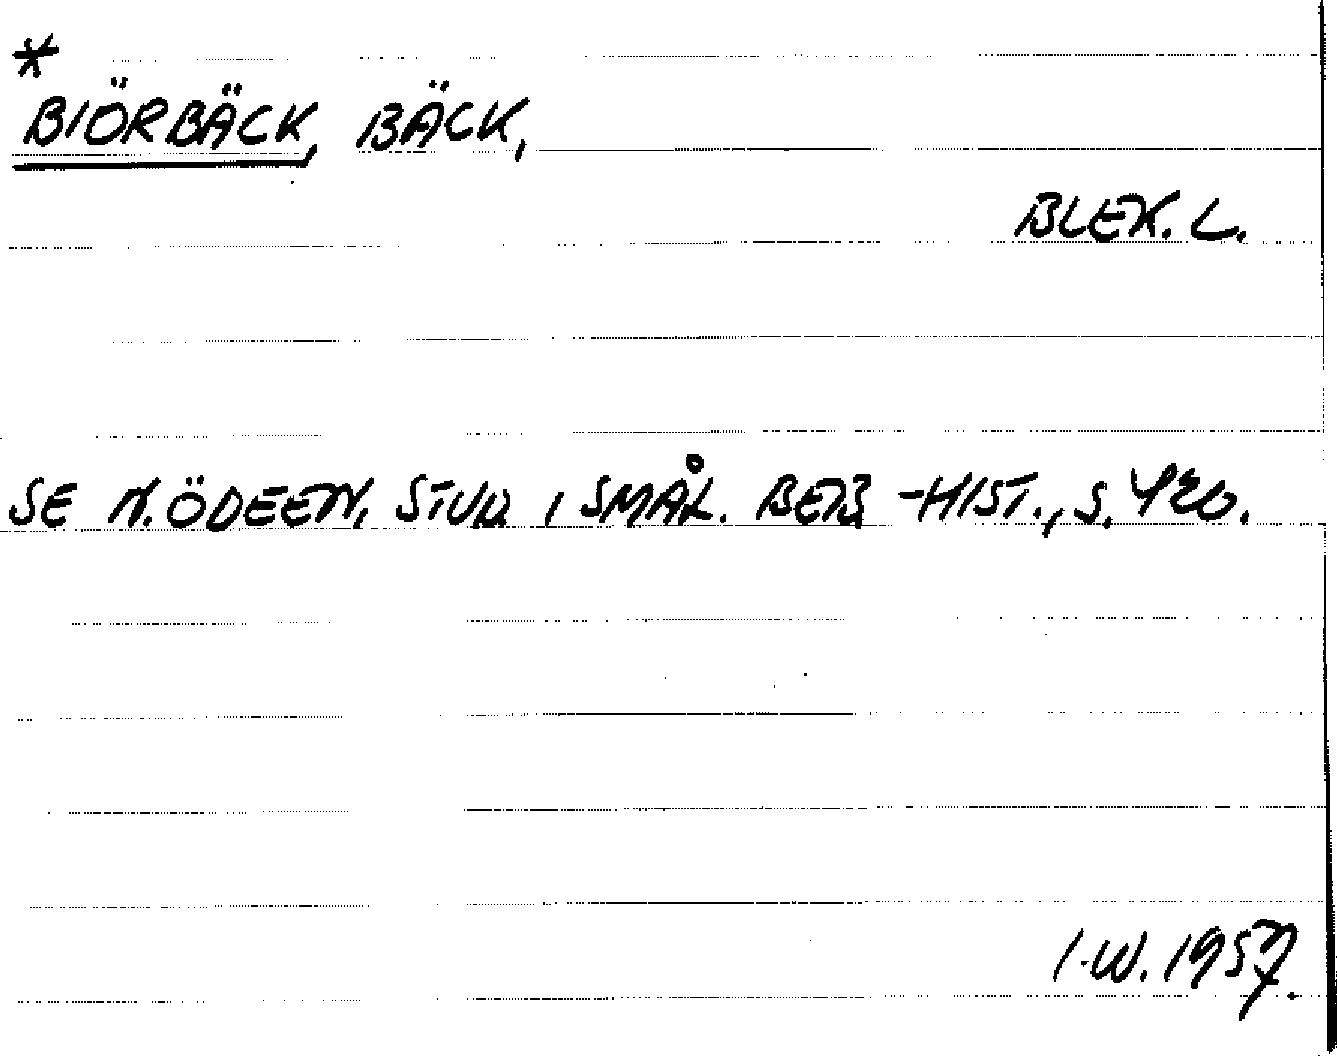 *
BIÖRBÄCK, BÄCK,
BLEK. L.
SE N. ÖDEEN, STUD. I SMÅL. BEB.-HIST., S. 420.
I.W. 1957.